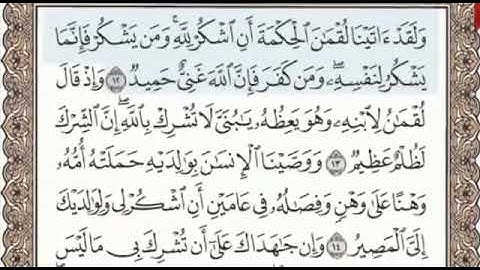 وَلَقَدْ ءَاتَيْنَا لُقْمَٰنَ ٱلْحِكْمَةَ أَنِ ٱشْكُرْ لِلَّهِ ۚ وَمَن يَشْكُرْ فَإِنَّمَا
يَشْكُرُ لِنَفْسِهِۦ ۖ وَمَن كَفَرَ فَإِنَّ ٱللَّهَ غَنِىٌّ حَمِيدٌ ١٢ وَإِذْ قَالَ
لُقْمَٰنُ لِٱبْنِهِۦ وَهُوَ يَعِظُهُۥ يَٰبُنَىَّ لَا تُشْرِكْ بِٱللَّهِ ۖ إِنَّ ٱلشِّرْكَ
لَظُلْمٌ عَظِيمٌ ١٣ وَوَصَّيْنَا ٱلْإِنسَٰنَ بِوَٰلِدَيْهِ حَمَلَتْهُ أُمُّهُۥ
وَهْنًا عَلَىٰ وَهْنٍ وَفِصَٰلُهُۥ فِى عَامَيْنِ أَنِ ٱشْكُرْ لِى وَلِوَٰلِدَيْكَ
إِلَىَّ ٱلْمَصِيرُ ١٤ وَإِن جَٰهَدَاكَ عَلَىٰٓ أَن تُشْرِكَ بِى مَا لَيْسَ